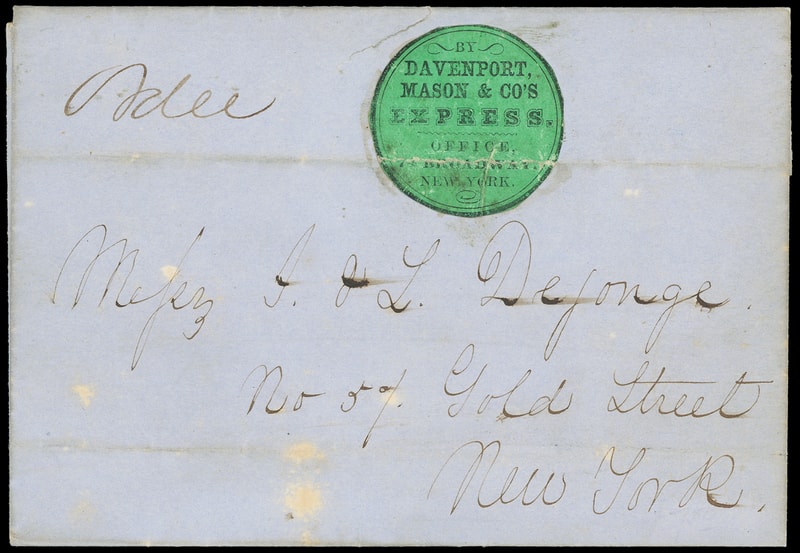 BY
DAVENPORT,
MASON & CO'S
EXPRESS.
OFFICE,
BROADWAY,
NEW YORK.
Adee
Messrs J. & L. Dejonge.
No 57. Gold Street
New York.